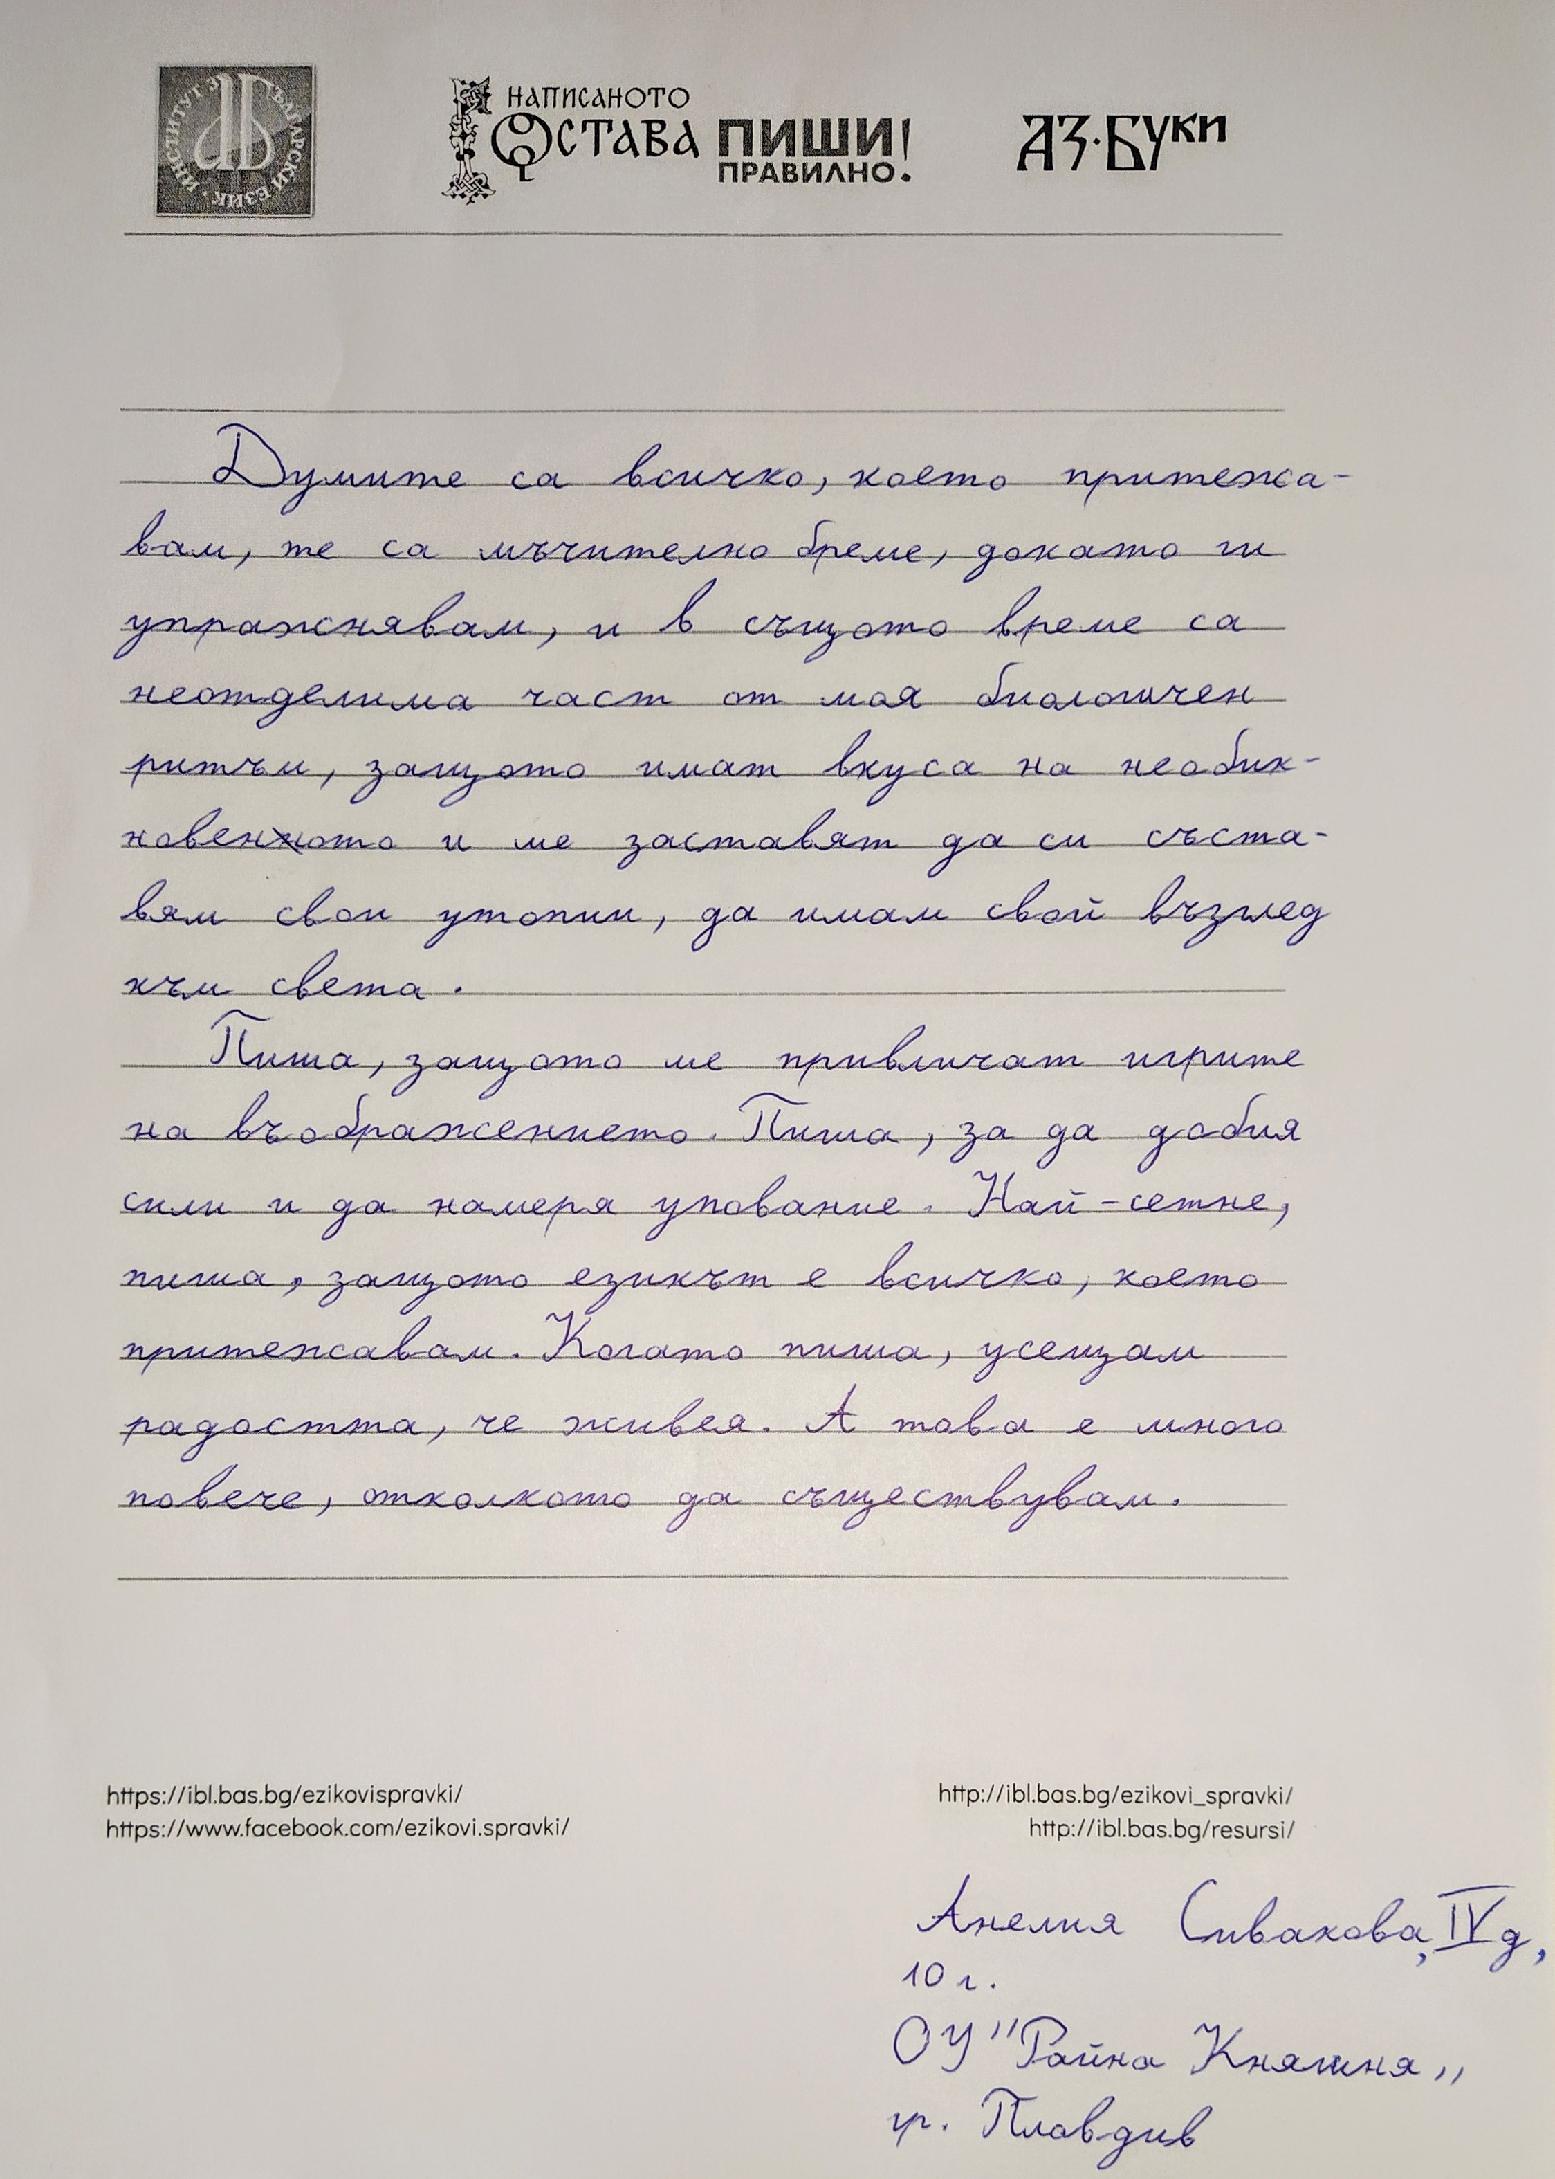 ИНСТИТУТ ЗА БЪЛГАРСКИ ЕЗИК
НАПИСАНОТО
ОСТАВА ПИШИ!
ПРАВИЛНО.
АЗ·БУКИ
Думите са всичко, което притежа-
вам, те са мъчително бреме, докато ги
упражнявам, и в същото време са
неотделима част от моя биологичен
ритъм, защото имат вкуса на необик-
новеното и ме заставят да си съста-
вям свои утопии, да имам свой възглед
към света.
Пиша, защото ме привличат игрите
на въображението. Пиша, за да добия
сили и да намеря упование. Най-сетне,
пиша, защото езикът е всичко, което
притежавам. Когато пиша, усещам
радостта, че живея. А това е много
повече, отколкото да съществувам.
https://ibl.bas.bg/ezikovispravki/ http://ibl.bas.bg/ezikovi_spravki/
https://www.facebook.com/ezikovi.spravki/ http://ibl.bas.bg/resursi/
Анелия Сивакова, IV д,
10 г.
ОУ "Райна Княгиня„
гр. Пловдив